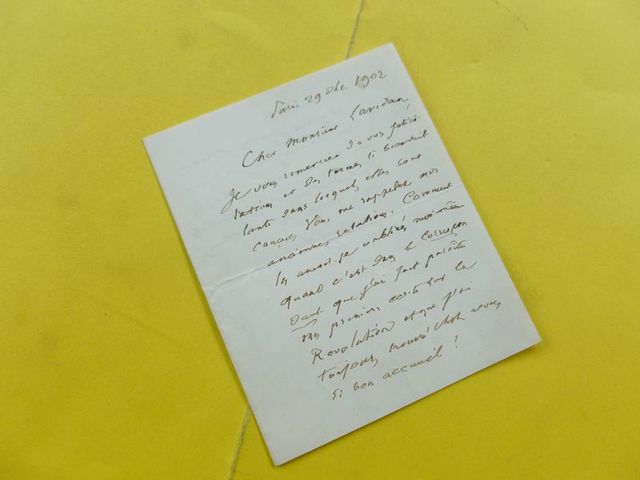 Paris 29 Dbe 1902
Cher Monsieur Lavedan,
Je vous remercie de vos félici-
tations et des termes si bienveil-
lants dans lesquels elles sont
conçues. Vous me rappelez nos
anciennes relations. Comment
les aurais-je oubliées
quand c'est dans le Correspon
dant que j'ai fait paraître
mes premiers écrits sur la
Révolution et que j'ai
toujours trouvé chez vous
si bon accueil!